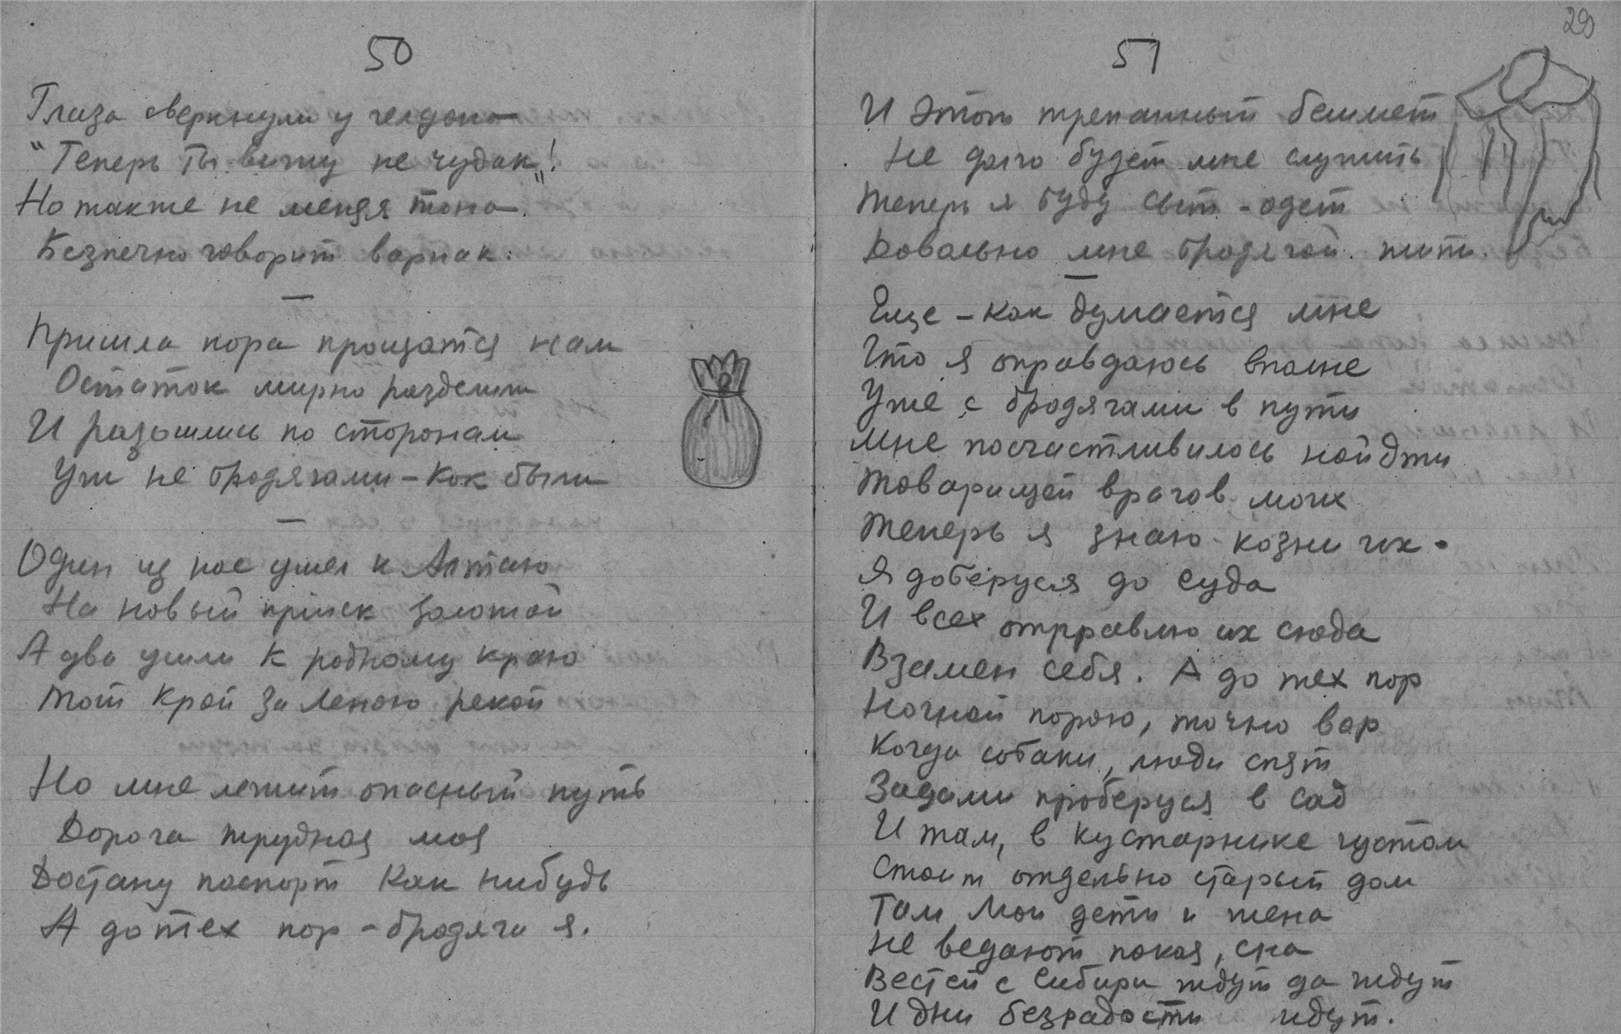 50
Глаза сверкнули у челдона
"Теперь ты вижу не чудак"!
Но также не меняя тона
Безпечно говорит варнак:
—
Пришла пора прощатся нам
Остаток мирно разделили
И разошлись по сторонам
Уж не бродягами – как были
—
Один из нас ушел к Алтаю
На новый прiиск золотой
А два ушли к родному краю
Тот край за Леною рекой
Но мне лежит опасный путь
Дорога трудная моя
Достану паспорт как нибудь
А до тех пор – бродяга я.
29
51
И этот трепанный бешмет
Не долго будет мне служить
Теперь я буду сыт – одет
Довольно мне бродягой жить.
—
Еще – как думается мне
Что я оправдаюсь вполне
Уже с бродягами в пути
Мне посчастливилось найдти
Товарищей врагов моих
Теперь я знаю козни их.
Я доберуся до суда
И всех отрравлю их сюда
Взамен себя. А до тех пор
Ночной порою, точно вор
Когда собаки, люди спят
Задами проберуся в сад
И там, в кустарнике густом
Стоит отдельно старый дом
Там мои дети и жена
Не ведают покоя, сна
Вестей с Сибири ждут да ждут
И дни безрадости идут.